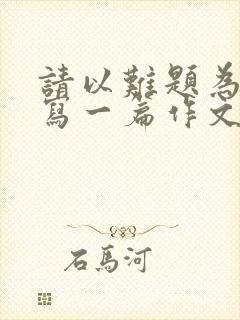 請以難題為
寫一篇作文
石馬河